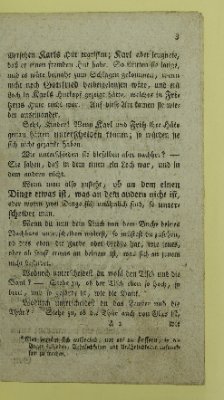 3
Karls Hut ergriffen; Karl aber leugnete,
daß er einen fremden Hut habe. So stritten sie lange,
und es wäre beynahe zum Schlagen gekommen, wenn
nicht noch Gottfried herbeygekommen wäre, und
in Karls Hutkopf gezeigt hätte, welches in Fri-
zens Hute nicht war. Auf diese Art kamen sie wie-
der auseinander.
Seht, Kinder! Wenn Karl und Fritz ihre Hüte
genau hätten unterscheiden können; so würden sie
sich nicht gezankt haben.
Wie unterschieden sie dieselben aber nachher? —
Sie sahen, daß in dem einen ein Loch war, und in
dem andern nicht.
Wenn man also zusieht, ob an dem einen
Dinge etwas ist, was an dem andern nicht ist,
oder worin zwey Dinge sich unähnlich sind, so unter-
scheidet man.
Wenn du nun dein Buch von dem Buche deines
Nachbars unterscheiden wolltest, so müßtest du zusehen,
ob dies eben die Farbe oder Größe hat, wie jenes,
oder ob sonst etwas an deinem ist, was sich an jenem
nicht findet.
Wodurch unterscheidest du wohl den Tisch und die
Bank? — Siehe zu, ob der Tisch eben so hoch, so
breit, und so gefärbt ist, wie die Bank.
Wodurch unterscheidest du das Fenster und die
Thüre? — Siehe zu, ob die Thüre auch von Glas ist,
A 2
wie